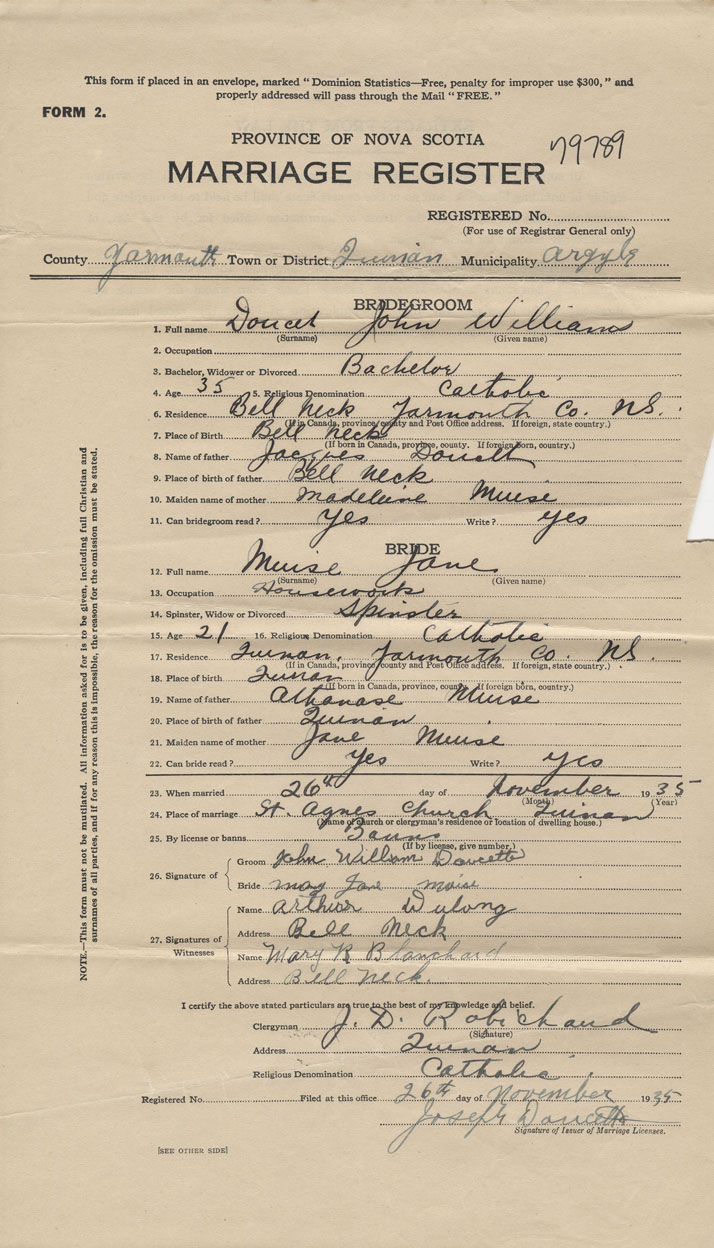 This form if placed in an envelope, marked "Dominion Statistics—Free, penalty for improper use $300," and
properly addressed will pass through the Mail "FREE."
FORM 2.
PROVINCE OF NOVA SCOTIA
79789
MARRIAGE REGISTER
REGISTERED No.
(For use of Registrar General only)
County Yarmouth Town or District Quinan Municipality Argyle
BRIDEGROOM
1. Full name Doucet John William
(Surname) (Given name)
2. Occupation
3. Bachelor, Widower or Divorced Bachelor
4. Age 35 5. Religious Denomination Catholic
6. Residence Bell Neck Yarmouth Co. NS.
(If in Canada, province, county and Post Office address. If foreign, state country.)
7. Place of Birth Bell Neck
(If born in Canada, province, county. If foreign born, country.)
8. Name of father Jacques Doucett
9. Place of birth of father Bell Neck
10. Maiden name of mother Madeleine Muise
11. Can bridegroom read? Yes Write? yes
BRIDE
12. Full name Muise Jane
(Surname) (Given name)
13. Occupation Housework
14. Spinster, Widow or Divorced Spinster
15. Age 21 16. Religious Denomination Catholic
17. Residence Quinan, Yarmouth Co. NS.
(If in Canada, province, county and Post Office address. If foreign, state country.)
18. Place of birth Quinan
(If born in Canada, province, county. If foreign born, country.)
19. Name of father Athanase Muise
20. Place of birth of father Quinan
21. Maiden name of mother Jane Muise
22. Can bride read? Yes Write? yes
23. When married 26th day of November 1935
(Month) (Year)
24. Place of marriage St. Agnes Church Quinan
(Name of church or clergyman's residence or location of dwelling house.)
25. By license or banns Banns
(If by license, give number.)
26. Signature of
Groom John William Doucette
Bride may Jane moise
27. Signatures of Witnesses
Name Arthur Dulong
Address Bell Neck
Name Mary R Blanchard
Address Bell Neck.
I certify the above stated particulars are true to the best of my knowledge and belief.
Clergyman J. D. Robichaud
(Signature)
Address Quinan
Religious Denomination Catholic
Registered No. Filed at this office 26th day of November 1935
Joseph Doucette
Signature of Issuer of Marriage Licenses.
[SEE OTHER SIDE]
NOTE.—This form must not be mutilated. All information asked for is to be given, including full Christian and
surnames of all parties, and if for any reason this is impossible, the reason for the omission must be stated.